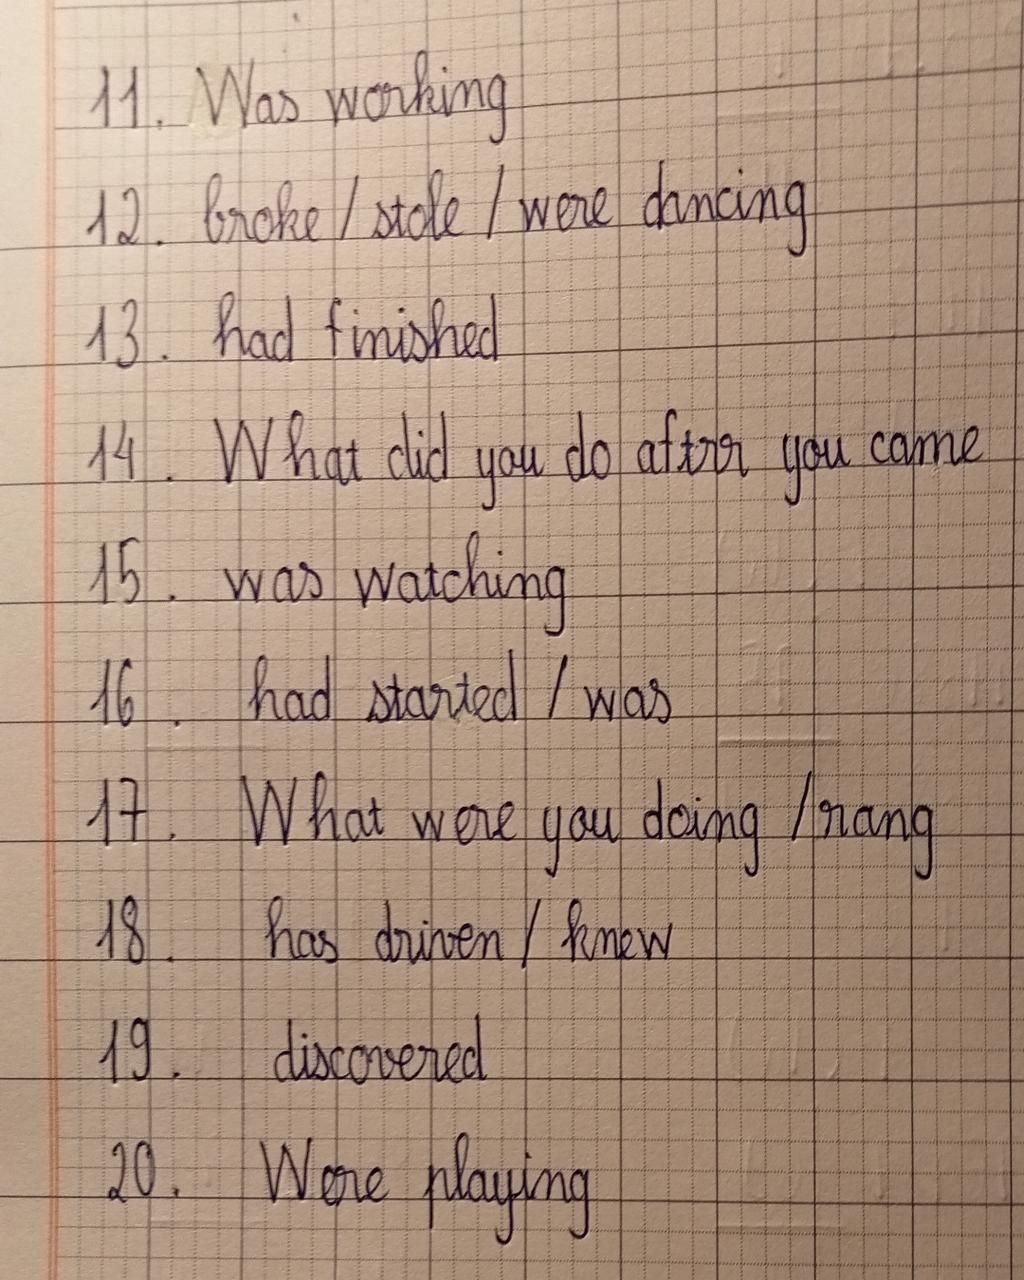 11. Was working
12. broke / stole / were dancing
13. had finished
14. What did you do after you came
15. was watching
16. had started / was
17. What were you doing / rang
18. has driven / knew
19. discovered
20. Were playing